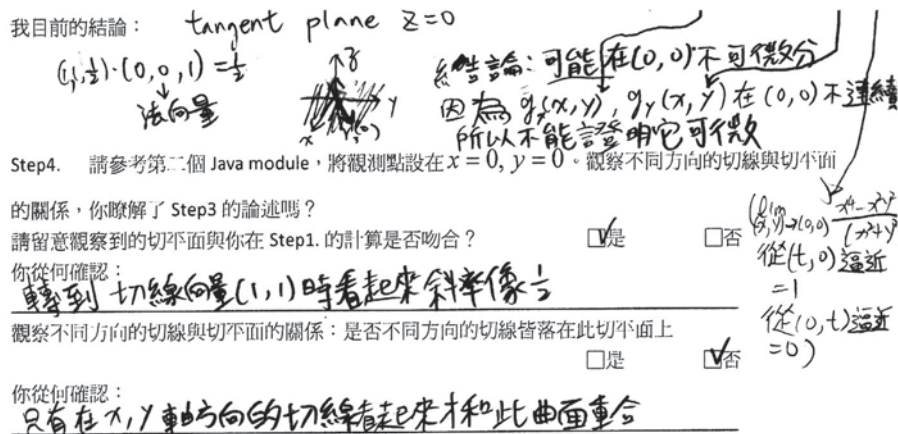 我目前的結論： tangent plane z=0
(1,1,½)·(0,0,1)=½
法向量
z
y
x
結論：可能在(0,0)不可微分
因為 gₓ(x,y), g_y(x,y) 在(0,0)不連續
所以不能證明它可微
Step4. 請參考第二個 Java module，將觀測點設在 x = 0, y = 0。觀察不同方向的切線與切平面
的關係，你瞭解了 Step3 的論述嗎？
請留意觀察到的切平面與你在 Step1. 的計算是否吻合？ ☑是 □否
你從何確認：
轉到切線向量(1,1)時看起來斜率像½
觀察不同方向的切線與切平面的關係：是否不同方向的切線皆落在此切平面上
□是 ☑否
你從何確認：
只有在x,y軸方向的切線看起來才和此曲面重合
(lim (x,y)→(0,0)
從(t,0)逼近
=1
從(0,t)逼近
=0)